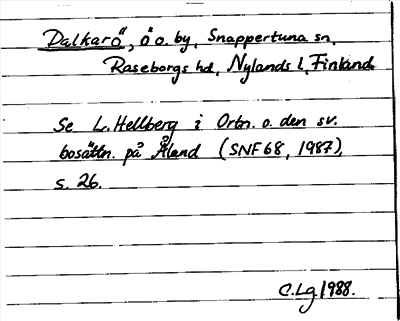 Dalkarö, ö o. by, Snappertuna sn,
Raseborgs hd, Nylands l, Finland.
Se L. Hellberg i Ortn. o. den sv.
bosättn. på Åland (SNF 68, 1987),
s. 26.
C.Lg. 1988.